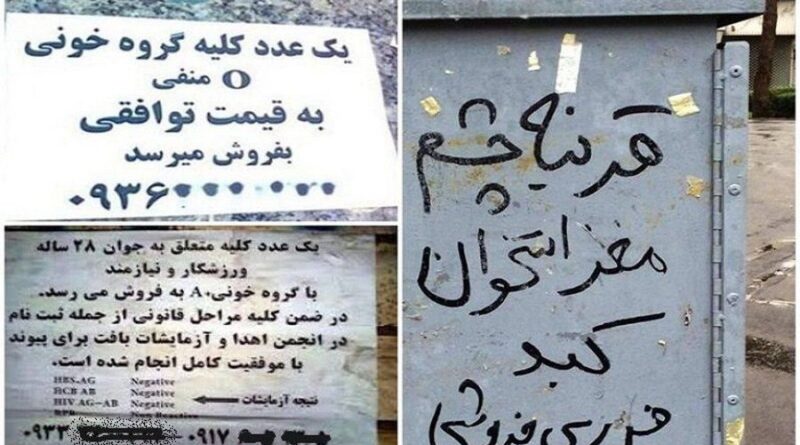 یک عدد کلیه گروه خونی
O منفی
به قیمت توافقی
بفروش میرسد
۰۹۳۶
یک عدد کلیه متعلق به جوان ۲۸ ساله
ورزشکار و نیازمند
با گروه خونی A+ به فروش می رسد.
در ضمن کلیه مراحل قانونی از جمله ثبت نام
در انجمن اهدا و آزمایشات بافت برای پیوند
با موفقیت کامل انجام شده است.
HBS.AG Negative
HCB AB Negative
HIV AG-AB Negative نتیجه آزمایشات
۰۹۳۳ ۰۹۱۷
قرنیه چشم
مغز استخوان
کبد
فوری فروشی